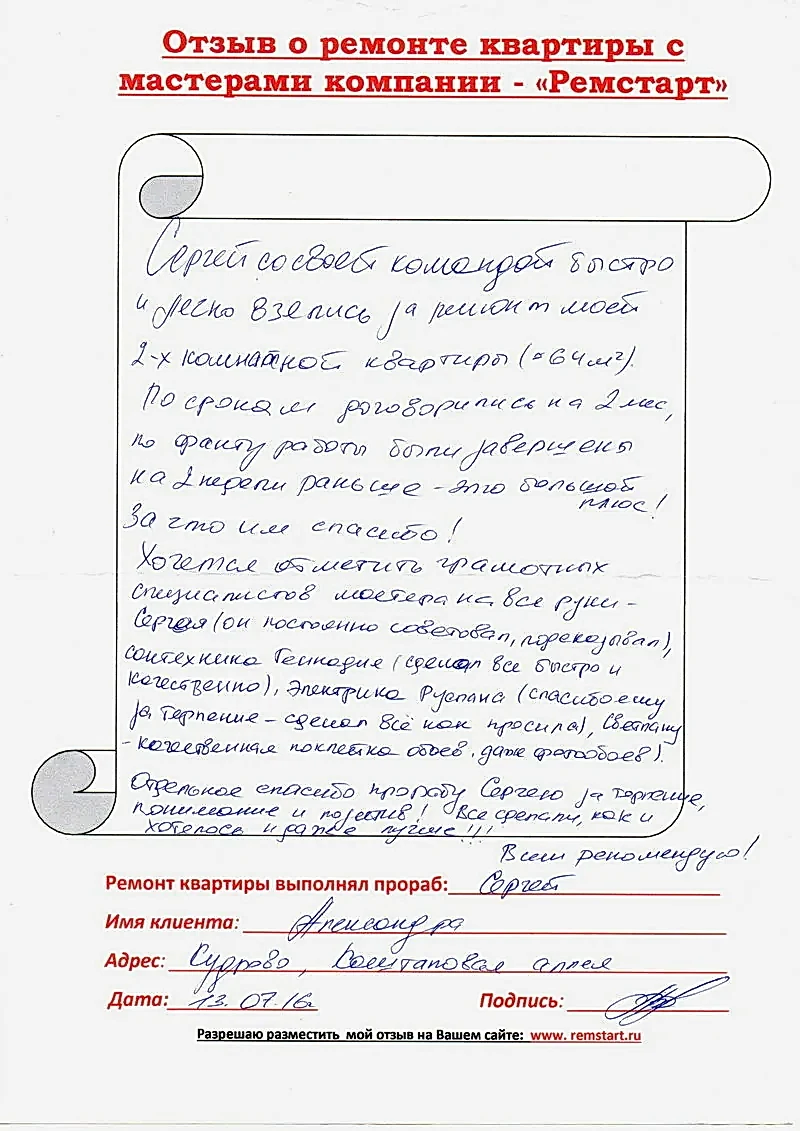 Отзыв о ремонте квартиры с
мастерами компании - «Ремстарт»
Сергей со своей командой быстро
и легко взялись за ремонт моей
2-х комнатной квартиры (≈64м²).
По срокам договорились на 2 мес,
по факту работы были завершены
на 2 недели раньше - это большой
плюс!
За что им спасибо!
Хочется отметить грамотных
специалистов мастера на все руки -
Сергея (он постоянно советовал, подсказывал),
сантехника Геннадия (сделал все быстро и
качественно), Электрика Руслана (спасибо ему
за терпение - сделал всё как просила), Светлану
- качественная поклейка обоев, даже фотообоев).
Отдельное спасибо прорабу Сергею за терпение,
понимание и позитив! Все сделали, как и
хотелось и даже лучше!!!
Всем рекомендую!
Ремонт квартиры выполнял прораб: Сергей
Имя клиента: Александра
Адрес: Кудрово, Каштановая аллея
Дата: 13.07.16г Подпись:
Разрешаю разместить мой отзыв на Вашем сайте: www. remstart.ru